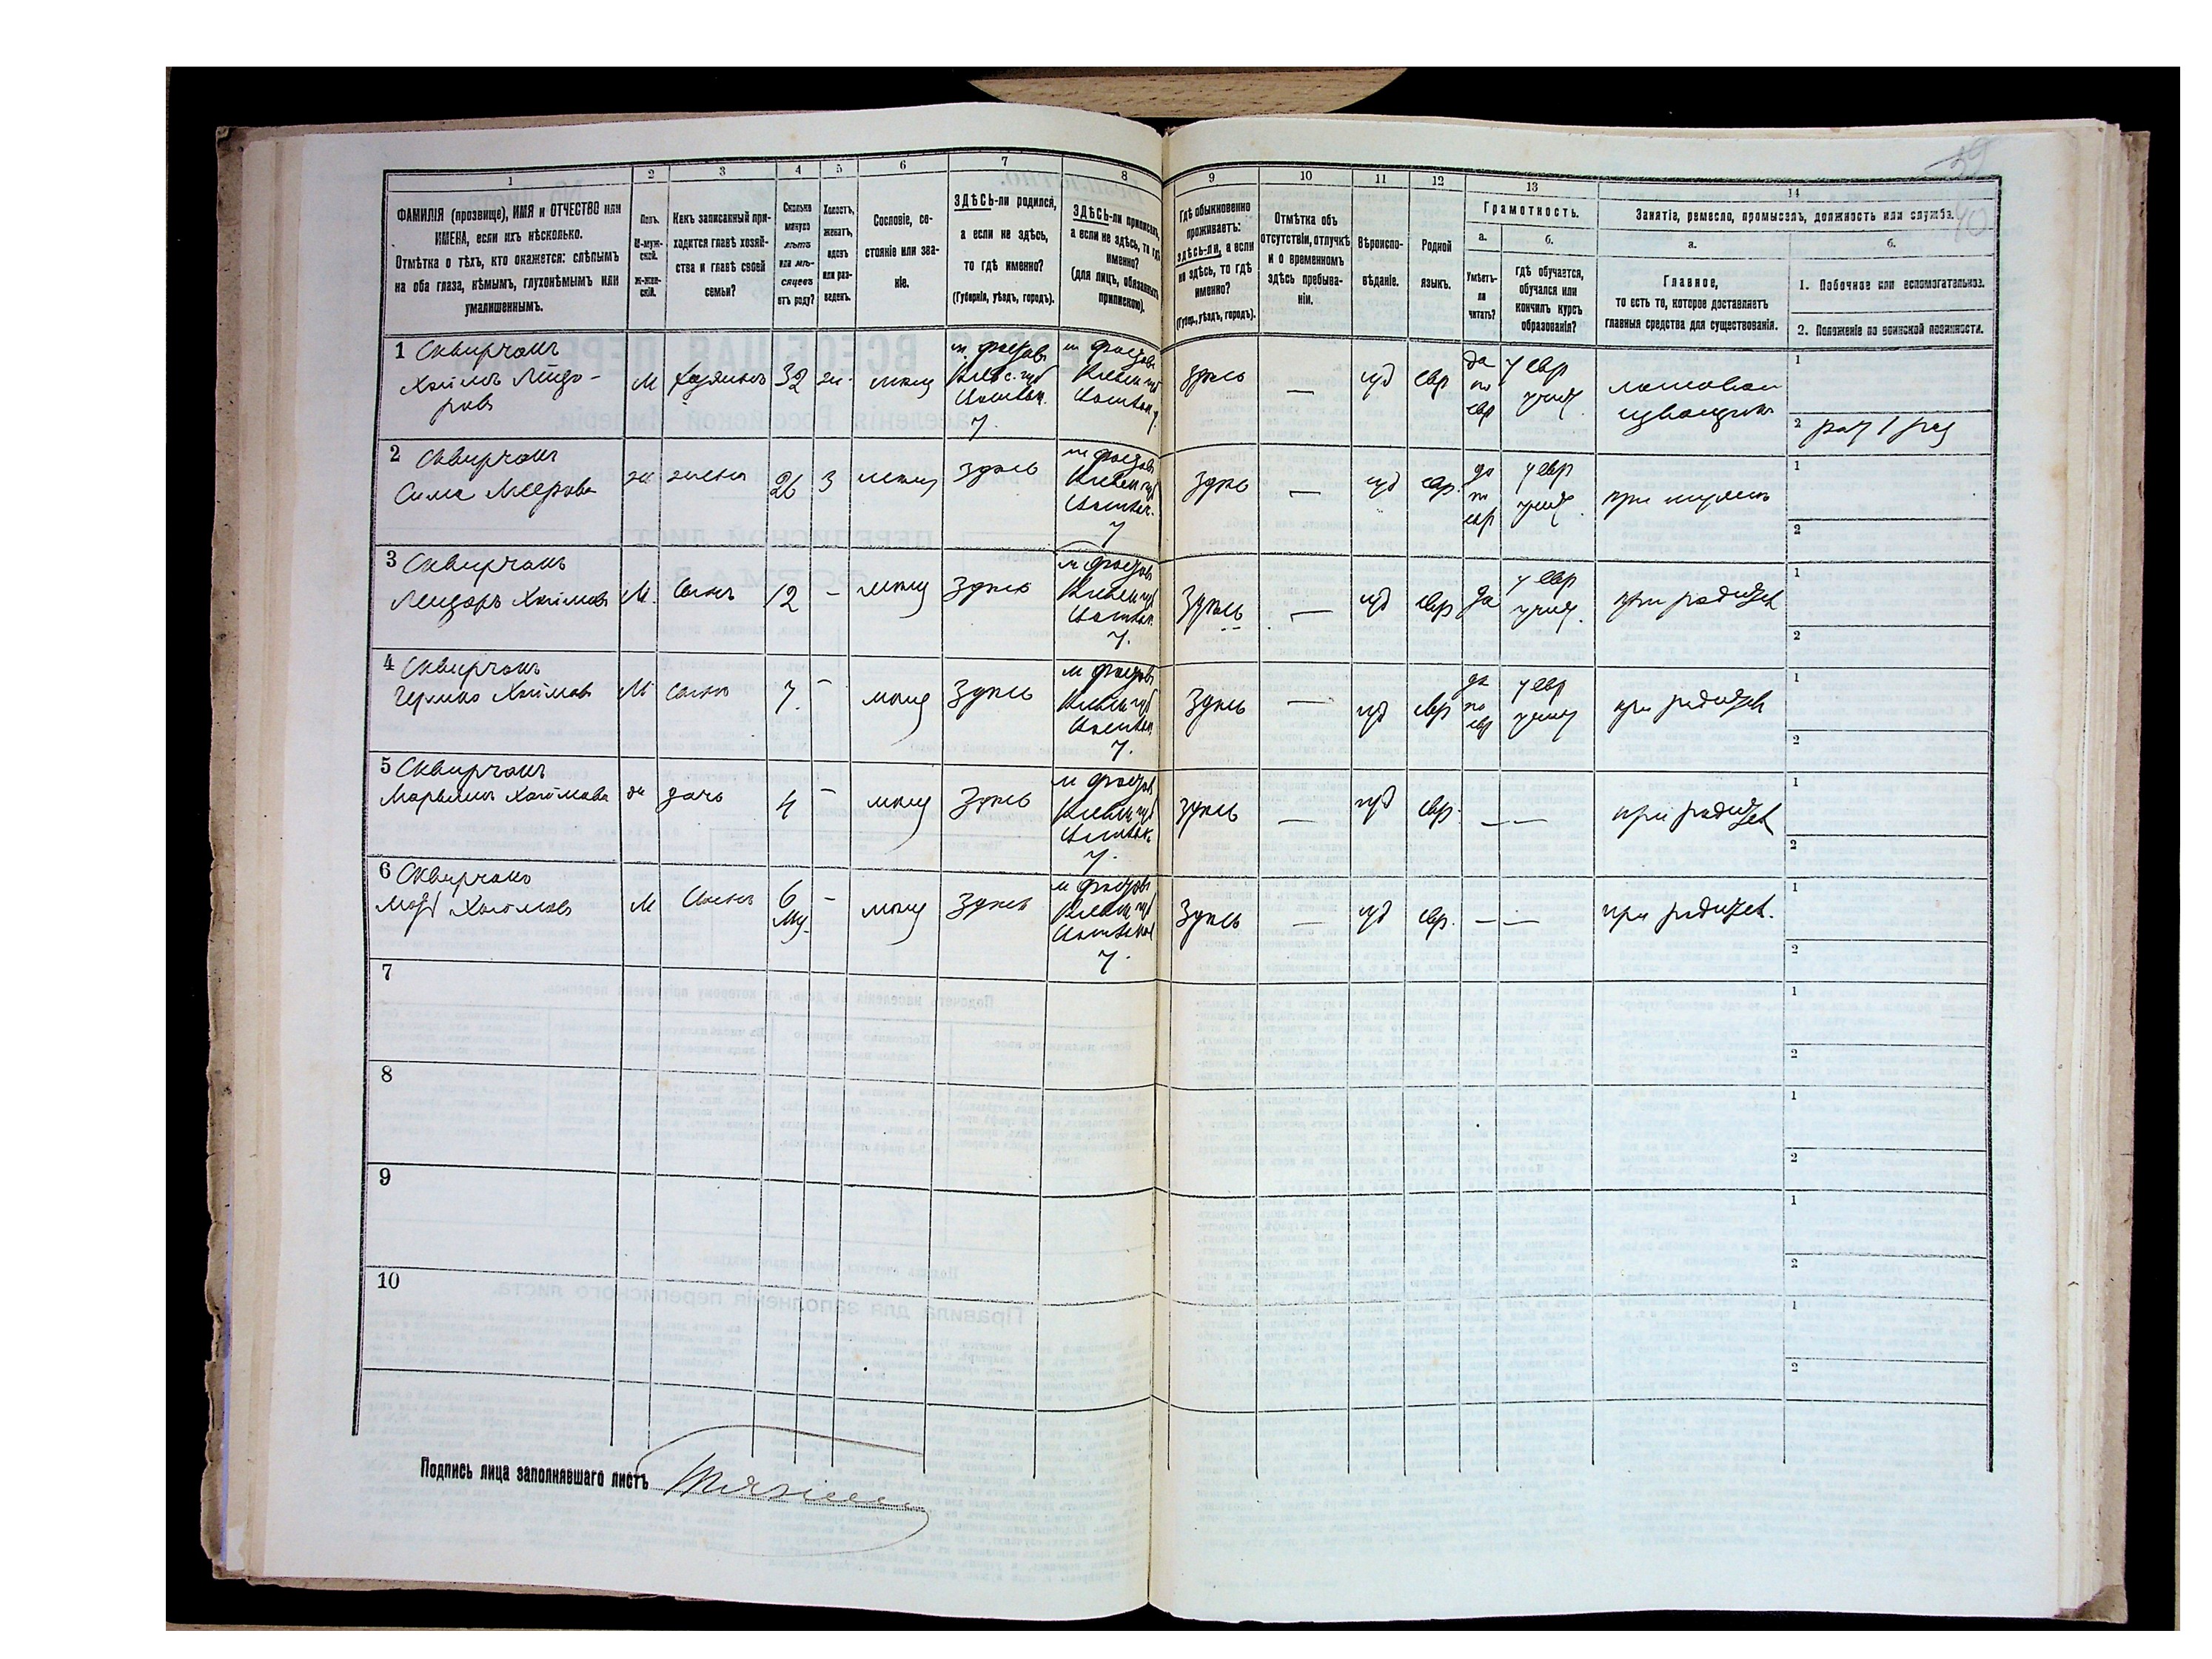 1 2 3 4 5 6 7 8 9 10 11 12 13 14
ФАМИЛІЯ (прозвище), ИМЯ и ОТЧЕСТВО или
ИМЕНА, если ихъ нѣсколько.
Отмѣтка о тѣхъ, кто окажется: слѣпымъ
на оба глаза, нѣмымъ, глухонѣмымъ или
умалишеннымъ.
Полъ.
М-муж-
ской.
Ж-жен-
скій.
Какъ записанный при-
ходится главѣ хозяй-
ства и главѣ своей
семьи?
Сколько
минуло
лѣтъ
или мѣ-
сяцевъ
отъ роду?
Холостъ,
женатъ,
вдовъ
или раз-
веденъ.
Сословіе, со-
стояніе или зва-
ніе.
ЗДѢСЬ-ли родился,
а если не здѣсь,
то гдѣ именно?
(Губернія, уѣздъ, городъ).
ЗДѢСЬ-ли приписанъ,
а если не здѣсь, то гдѣ
именно?
(для лицъ, обязанныхъ
припискою).
Гдѣ обыкновенно
проживаетъ:
здѣсь-ли, а если
не здѣсь, то гдѣ
именно?
(Губер., уѣздъ, городъ).
Отмѣтка объ
отсутствіи, отлучкѣ
и о временномъ
здѣсь пребыва-
ніи.
Вѣроиспо-
вѣданіе.
Родной
языкъ.
Грамотность.
а.
Умѣетъ-
ли
читать?
б.
гдѣ обучается,
обучался или
кончилъ курсъ
образованія?
Занятіе, ремесло, промыселъ, должность или служба.
а.
Главное,
то есть то, которое доставляетъ
главныя средства для существованія.
б.
1. Побочное или вспомогательное.
2. Положеніе по воинской повинности.
1 Сквирчакъ
Хаимъ Лейзо-
ровъ
М
хозяинъ
32
ж.
мѣщ
м. Фастовъ
Кіевс. губ
Васильк.
у.
м Фастовъ
Кіевск губ
Васильк у.
здѣсь
—
іуд
евр
да
по
евр
у евр
учит.
легковой
извощикъ
1
2 рат 1 раз
2 Сквирчакъ
Сима Меерова
ж
жена
26
З
мѣщ
здѣсь
м Фастовъ
Кіевск губ
Васильк.
у
здѣсь
—
іуд
евр.
да
по
евр
у евр
учит.
при мужѣ
1
2
3 Сквирчакъ
Лейзоръ Хаимовъ
М.
сынъ
12
-
мѣщ
здѣсь
м Фастовъ
Кіевск губ
Васильк.
у.
Здѣсь
—
іуд
евр
да
у евр
учит.
при родител
1
2
4 Сквирчакъ
Хаимовъ
М
сынъ
7.
-
мѣщ
Здѣсь
м Фастовъ
Кіевск губ
Васильк
у.
Здѣсь
—
іуд
евр
да
по
евр
у евр
учит
при родител
1
2
5 Сквирчакъ
Хаимова
ж
дочь
4
-
мѣщ
Здѣсь
м Фастовъ
Кіевск губ
Васильк.
у.
здѣсь
—
іуд
евр.
— —
при родител
1
2
6 Сквирчакъ
Хаимовъ
М
сынъ
6
мѣс.
-
мѣщ
Здѣсь
м Фастовъ
Кіевск губ
Васильк
у.
Здѣсь
—
іуд
евр.
— —
при родител.
1
2
7
1
2
8
1
2
9
1
2
10
1
2
Подпись лица заполнявшаго листъ